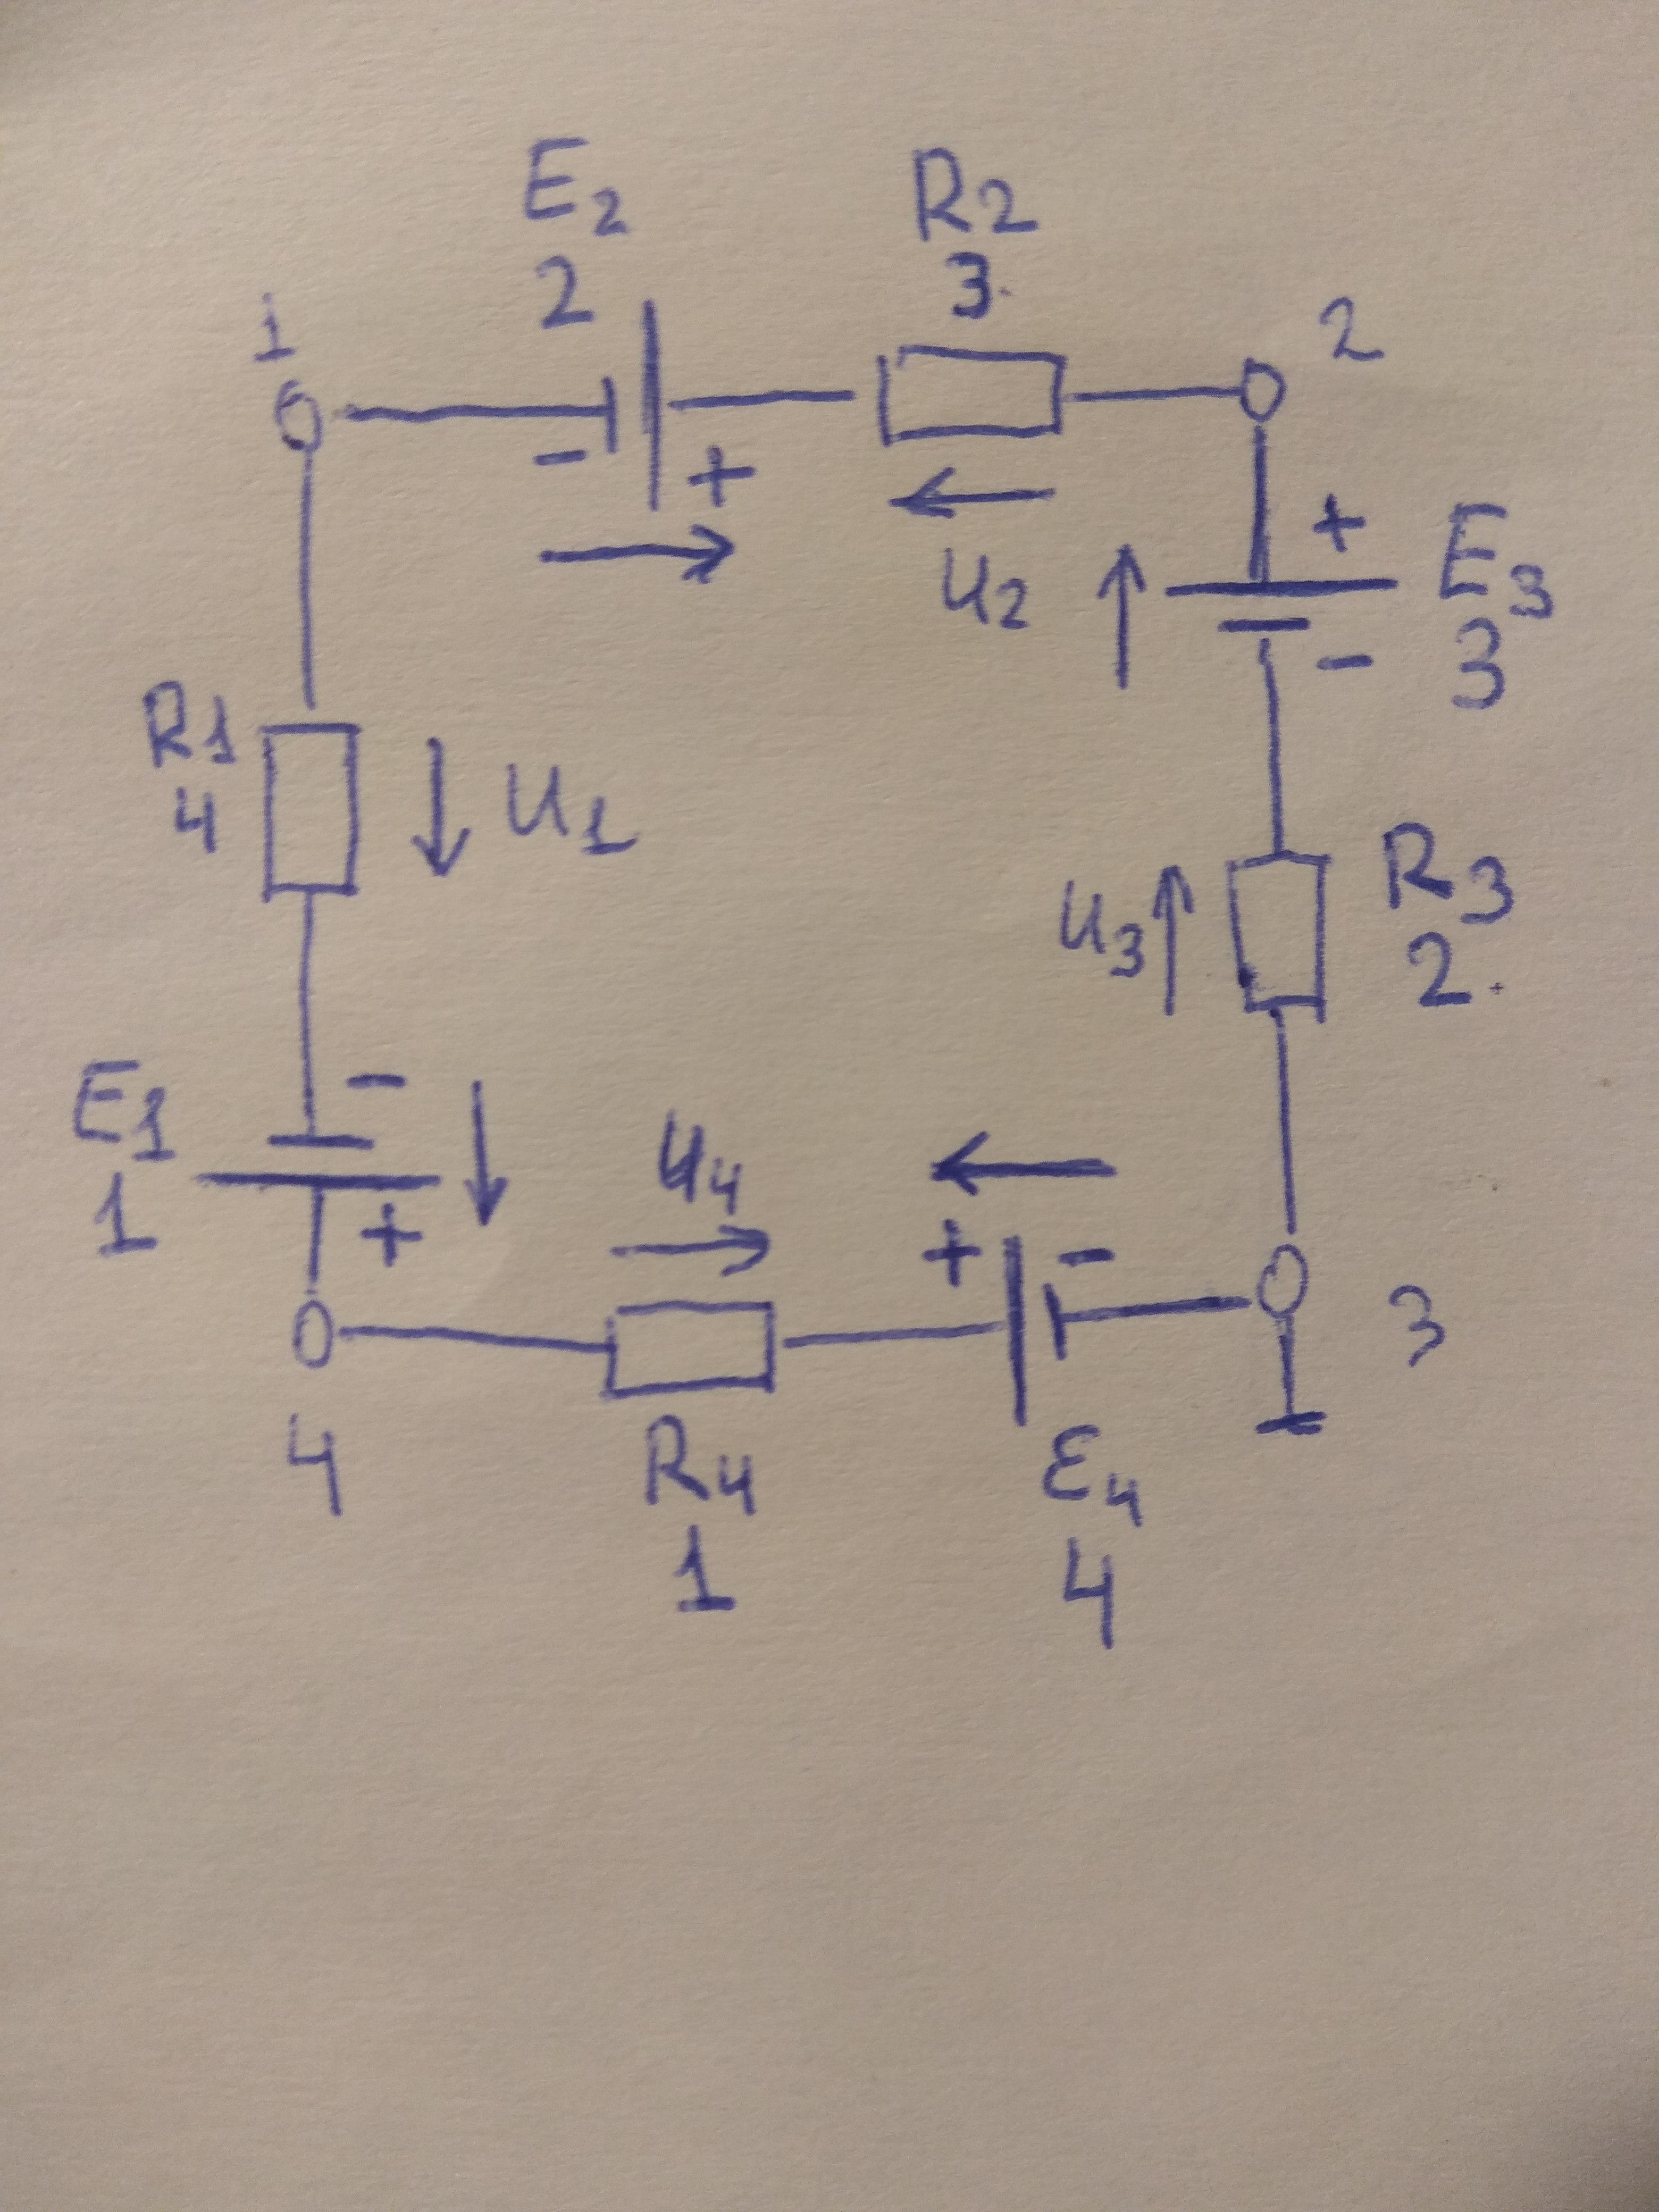 E2
2
R2
3
1
2
- +
U2
+
E3
3
-
R1
4
U1
U3
R3
2
E1
1
-
+
U4
+ -
3
4
R4
1
E4
4